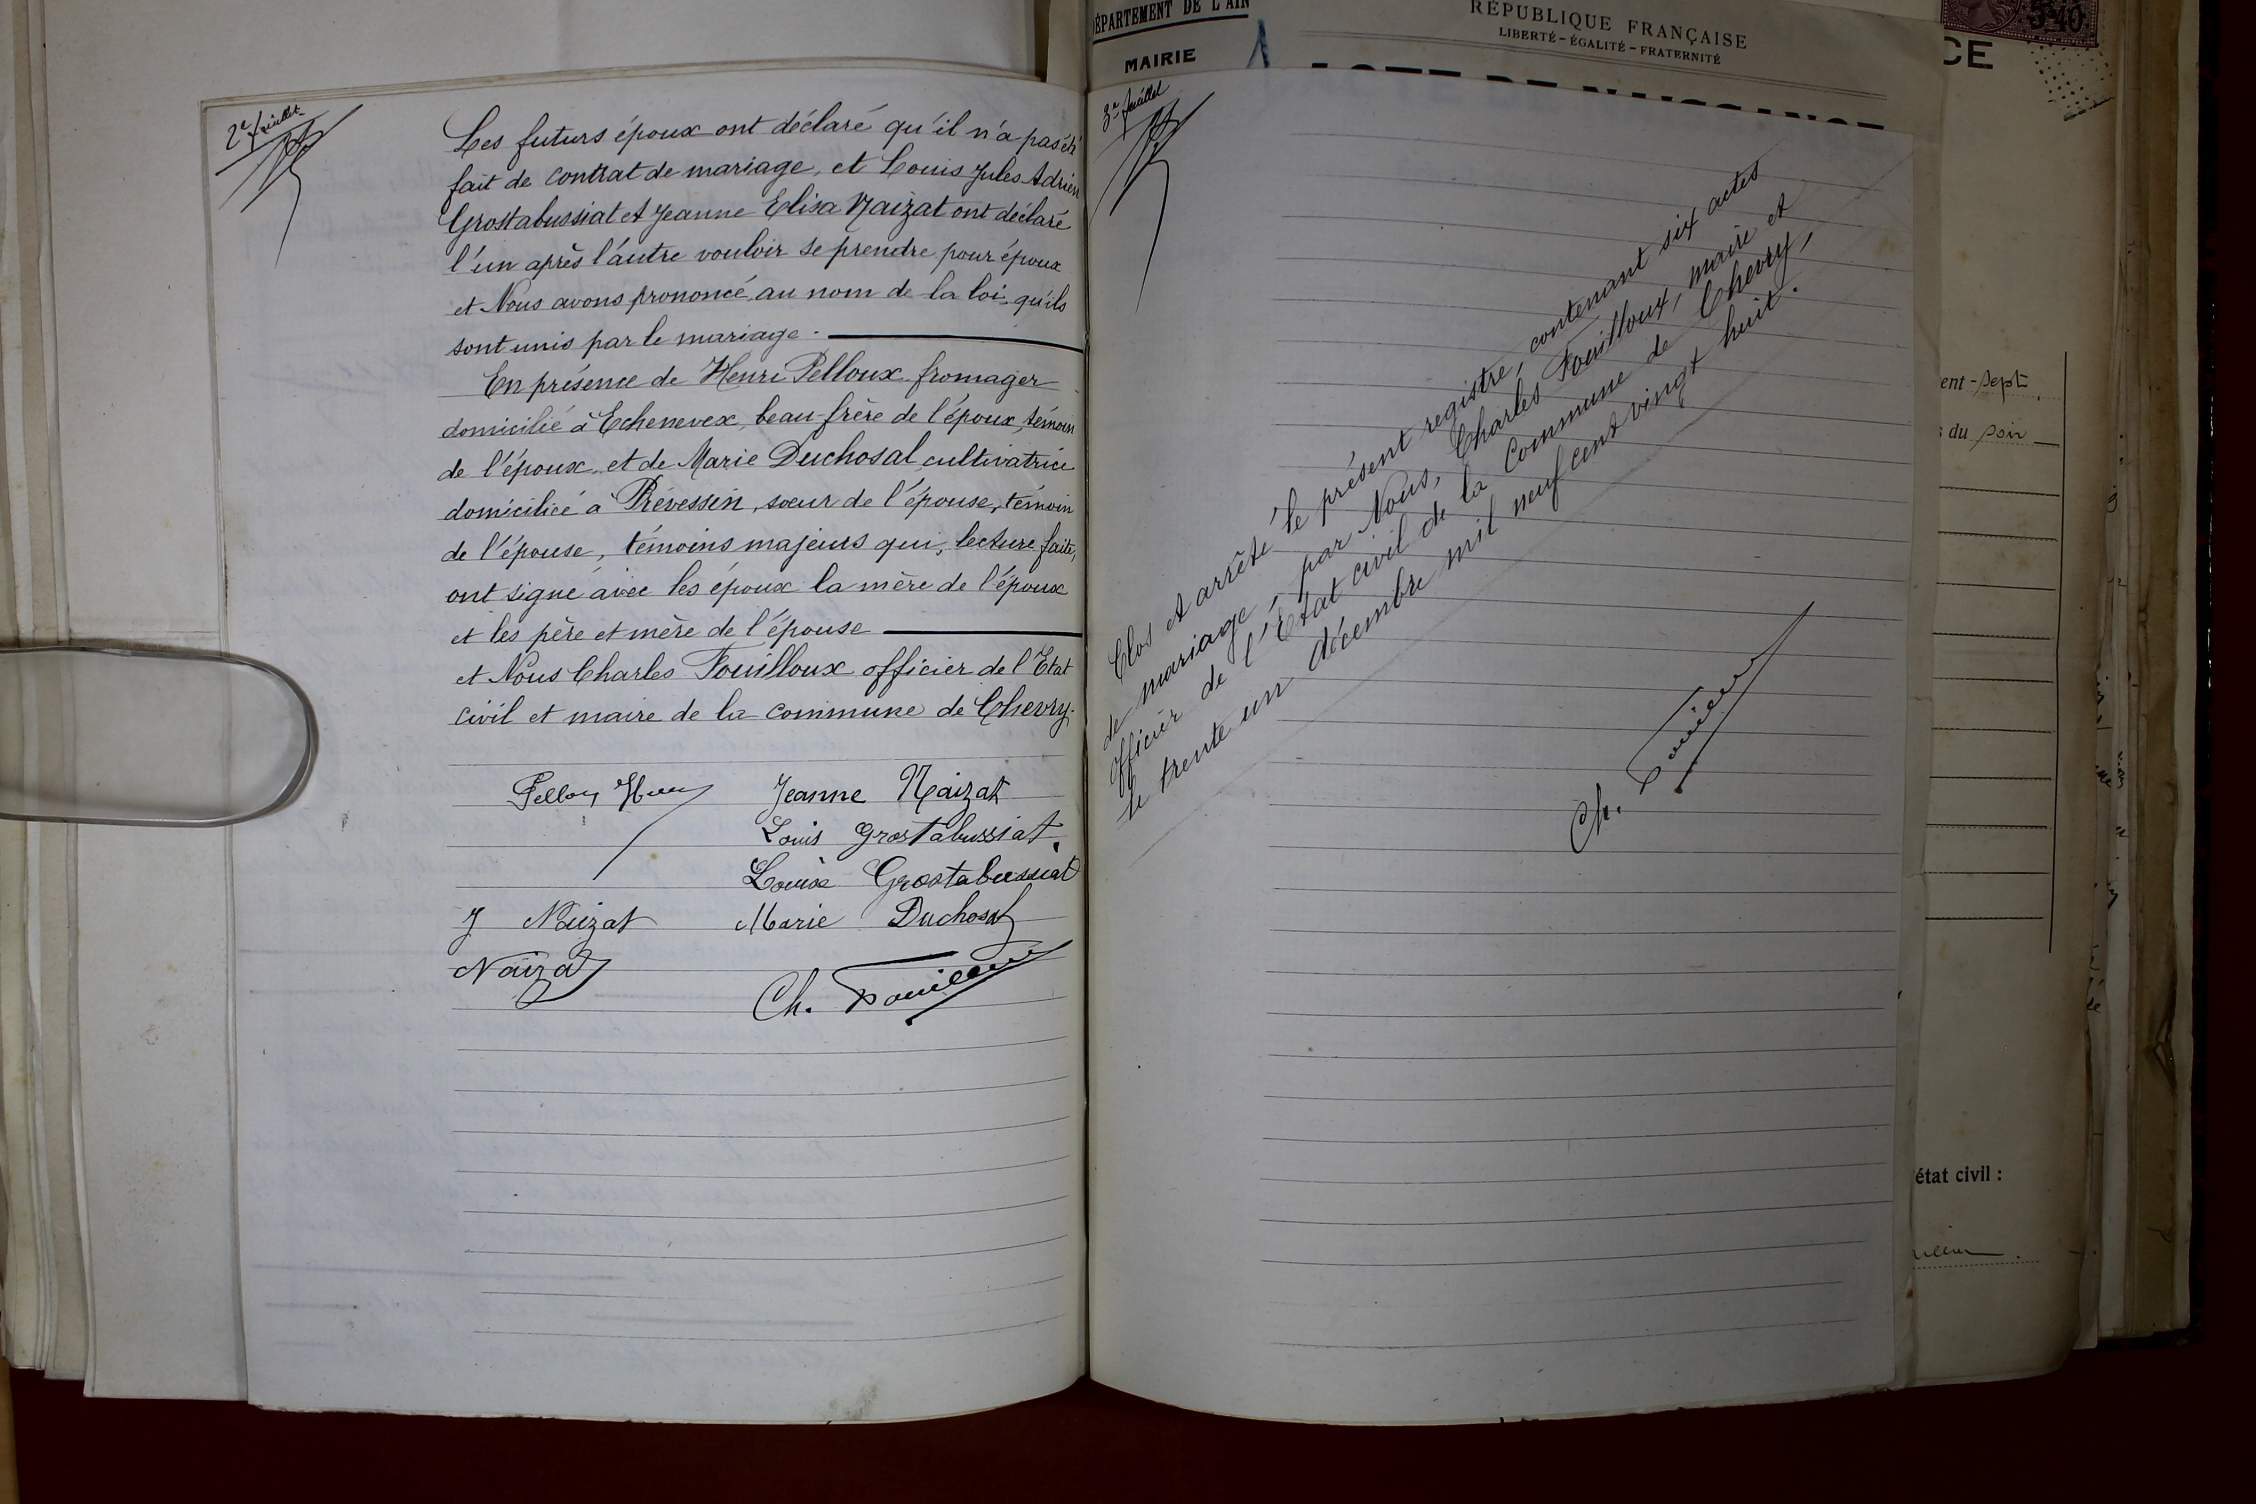 2e feuillet
Les futurs époux ont déclaré qu'il n'a pas été
fait de contrat de mariage, et Louis Jules Adrien
Grostabussiat et Jeanne Elisa Naizat ont déclaré
l'un après l'autre vouloir se prendre pour époux
et Nous avons prononcé au nom de la loi qu'ils
sont unis par le mariage.
En présence de Henri Pelloux fromager
domicilié à Echenevex, beau-frère de l'époux, témoin
de l'époux et de Marie Duchosal cultivatrice
domiciliée à Prévessin, soeur de l'épouse, témoin
de l'épouse, témoins majeurs qui, lecture faite,
ont signé avec les époux la mère de l'époux
et les père et mère de l'épouse
et Nous Charles Fouilloux officier de l'Etat
civil et maire de la commune de Chevry.
Jeanne Naizat
Louis Grostabussiat.
Louise Grostabussiat
J Naizat Marie Duchosal
Naizat
Ch. Fouilloux
DÉPARTEMENT DE L'AIN
MAIRIE
RÉPUBLIQUE FRANÇAISE
LIBERTÉ - ÉGALITÉ - FRATERNITÉ
ACTE DE NAISSANCE
3e feuillet
Clos et arrêté le présent registre, contenant six actes
de mariage, par Nous, Charles Fouilloux, maire et
officier de l'Etat civil de la Commune de Chevry,
le trente un décembre mil neuf cent vingt huit.
Ch. Fouilloux
CE
ent-sept
du soir
état civil :